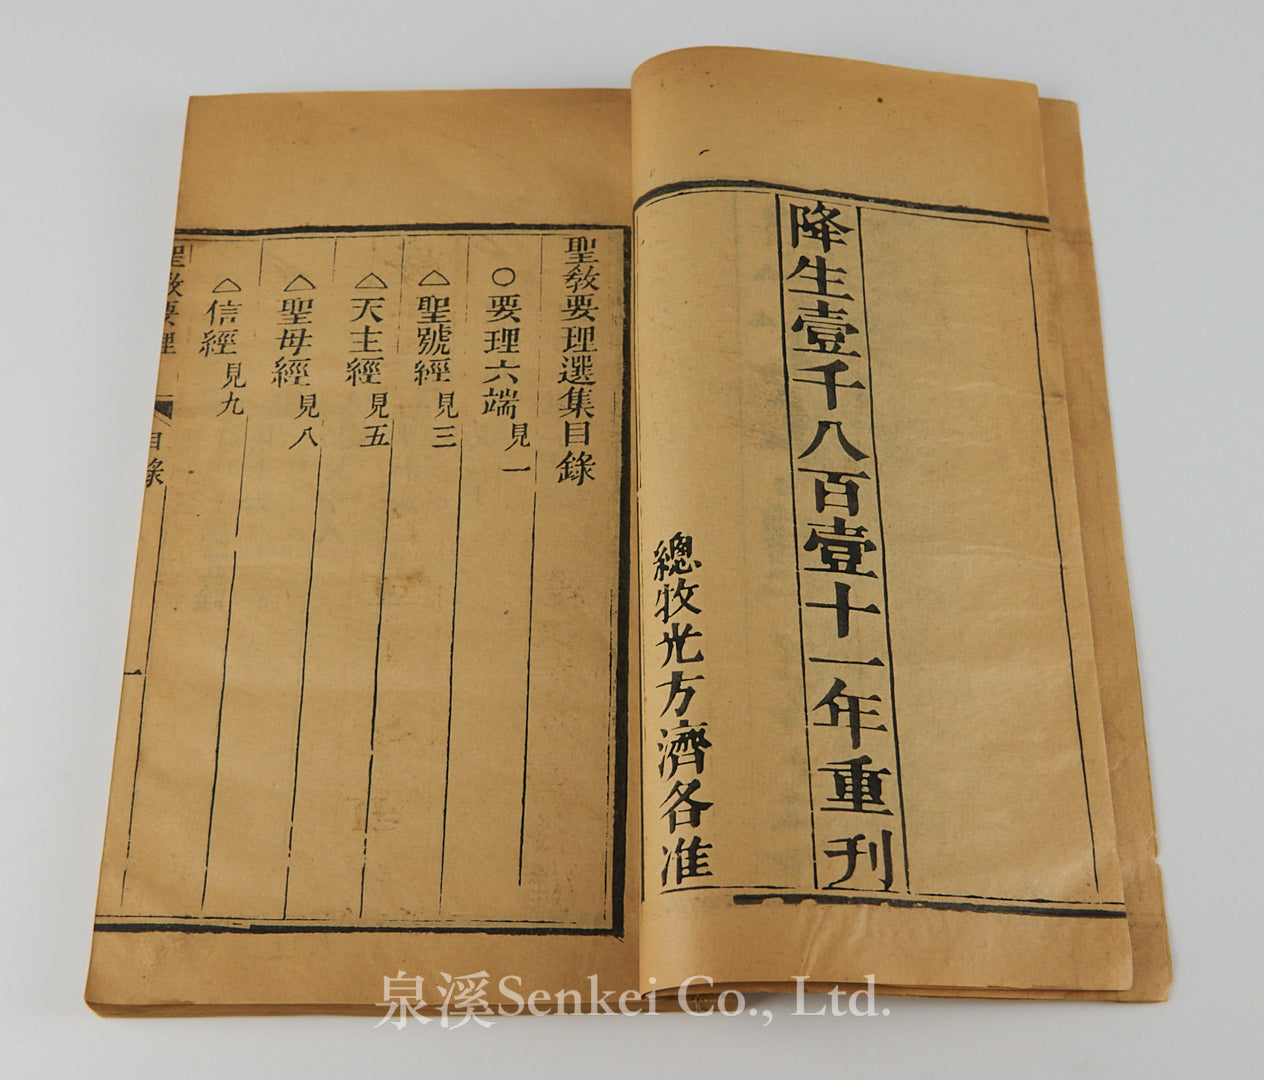 降生壹千八百壹十一年重刊
總牧光方濟各准
聖教要理選集目錄
○要理六端見一
△聖號經見三
△天主經見五
△聖母經見八
△信經見九
聖教要理 目錄 一
泉溪Senkei Co., Ltd.